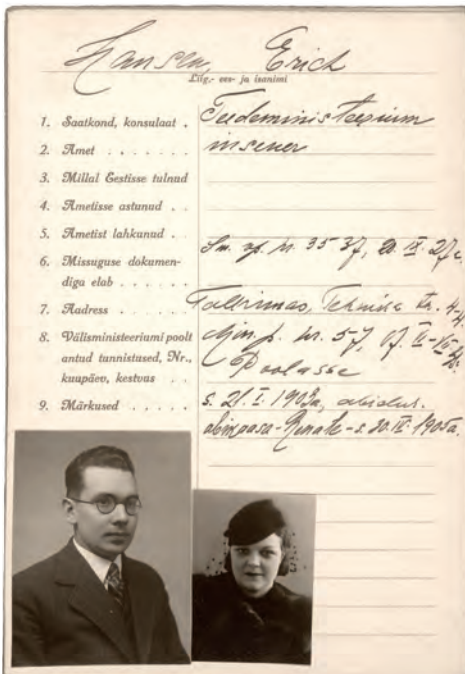 Hansen, Erich
Liig-, ees- ja isanimi
1. Saatkond, konsulaat . Teedeministeerium
2. Amet . . . . . . . insener
3. Millal Eestisse tulnud
4. Ametisse astunud . .
5. Ametist lahkunud . .
6. Missuguse dokumen-
diga elab . . . . . . nr. 3537, 20. IX. 27a.
7. Aadress . . . . . . Tallinnas, Tehnika tn. 4-4.
8. Välisministeeriumi poolt
antud tunnistused, Nr., nr. 57,
kuupäev, kestvus . . Poolasse
9. Märkused . . . . . s. 21. I. 1903a, abielus.
abikaasa-Renate-s. 20. IV. 1905a.